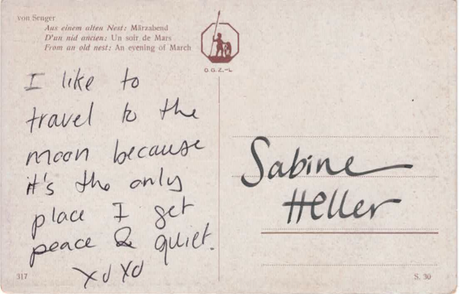 von Senger
Aus einem alten Nest: Märzabend
D'un nid ancien: Un soir de Mars
From an old nest: An evening of March
I like to
travel to the
moon because
it's the only
place I get
peace & quiet.
xoxo
Sabine
Heller
317
S. 30